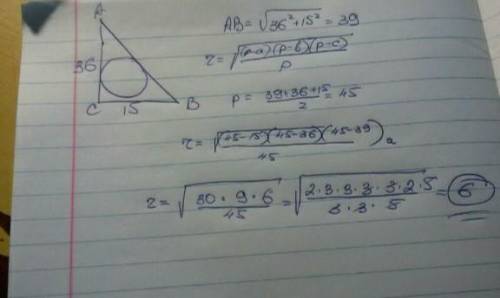 A
36
C 15 B
AB = √36² + 15² = 39
r = √(p-a)(p-b)(p-c) / p
p = 39+36+15 / 2 = 45
r = √(45-15)(45-36)(45-39) / 45
r = √30 · 9 · 6 / 45 = √2·3·3·3·3·2·5 / 3·3·5 = 6